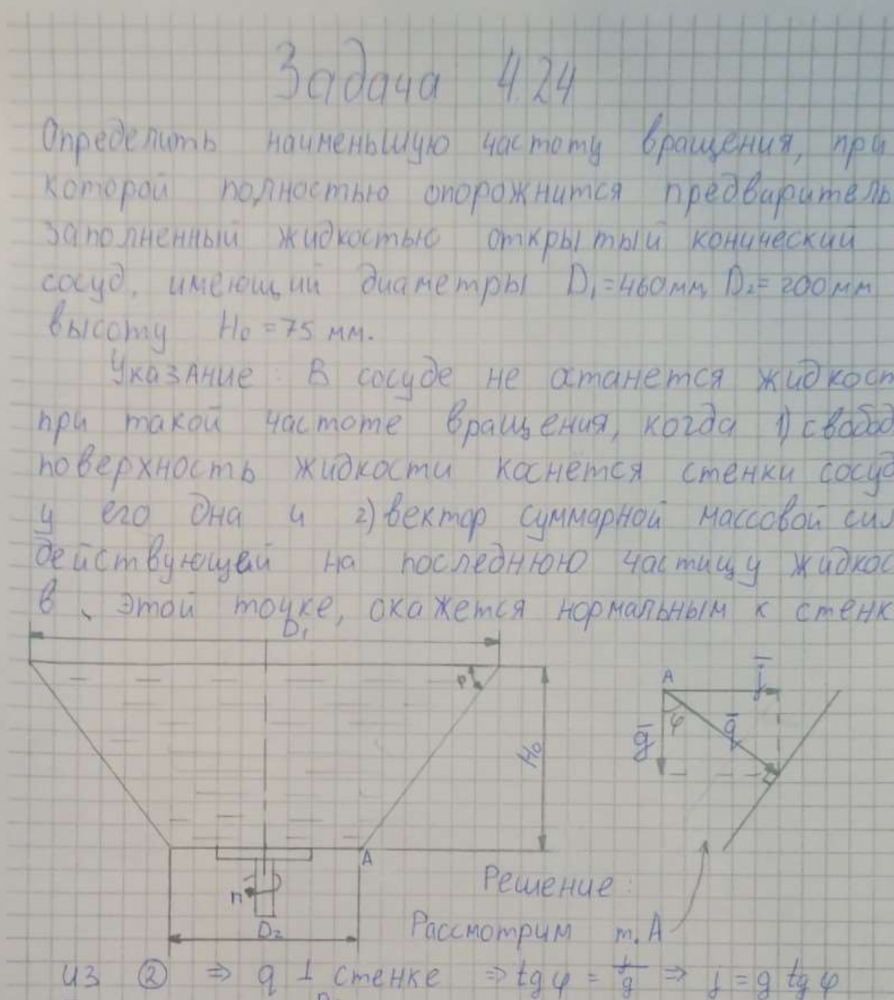 Задача 4.24
Определить наименьшую частоту вращения, при
которой полностью опорожнится предваритель
заполненный жидкостью открытый конический
сосуд, имеющий диаметры D₁=460мм, D₂=200мм
высоту H₀=75 мм.
Указание: В сосуде не останется жидкост
при такой частоте вращения, когда 1) свобод
поверхность жидкости коснется стенки сосуд
у его дна и 2) вектор суммарной массовой сил
действующей на последнюю частицу жидкос
в этой точке, окажется нормальным к стенк
D₁
φ
H₀
A
n
D₂
A
j
g
φ
q
Решение:
Рассмотрим т.А
из ② ⇒ q ⊥ стенке ⇒ tg φ = j/g ⇒ j = g tg φ